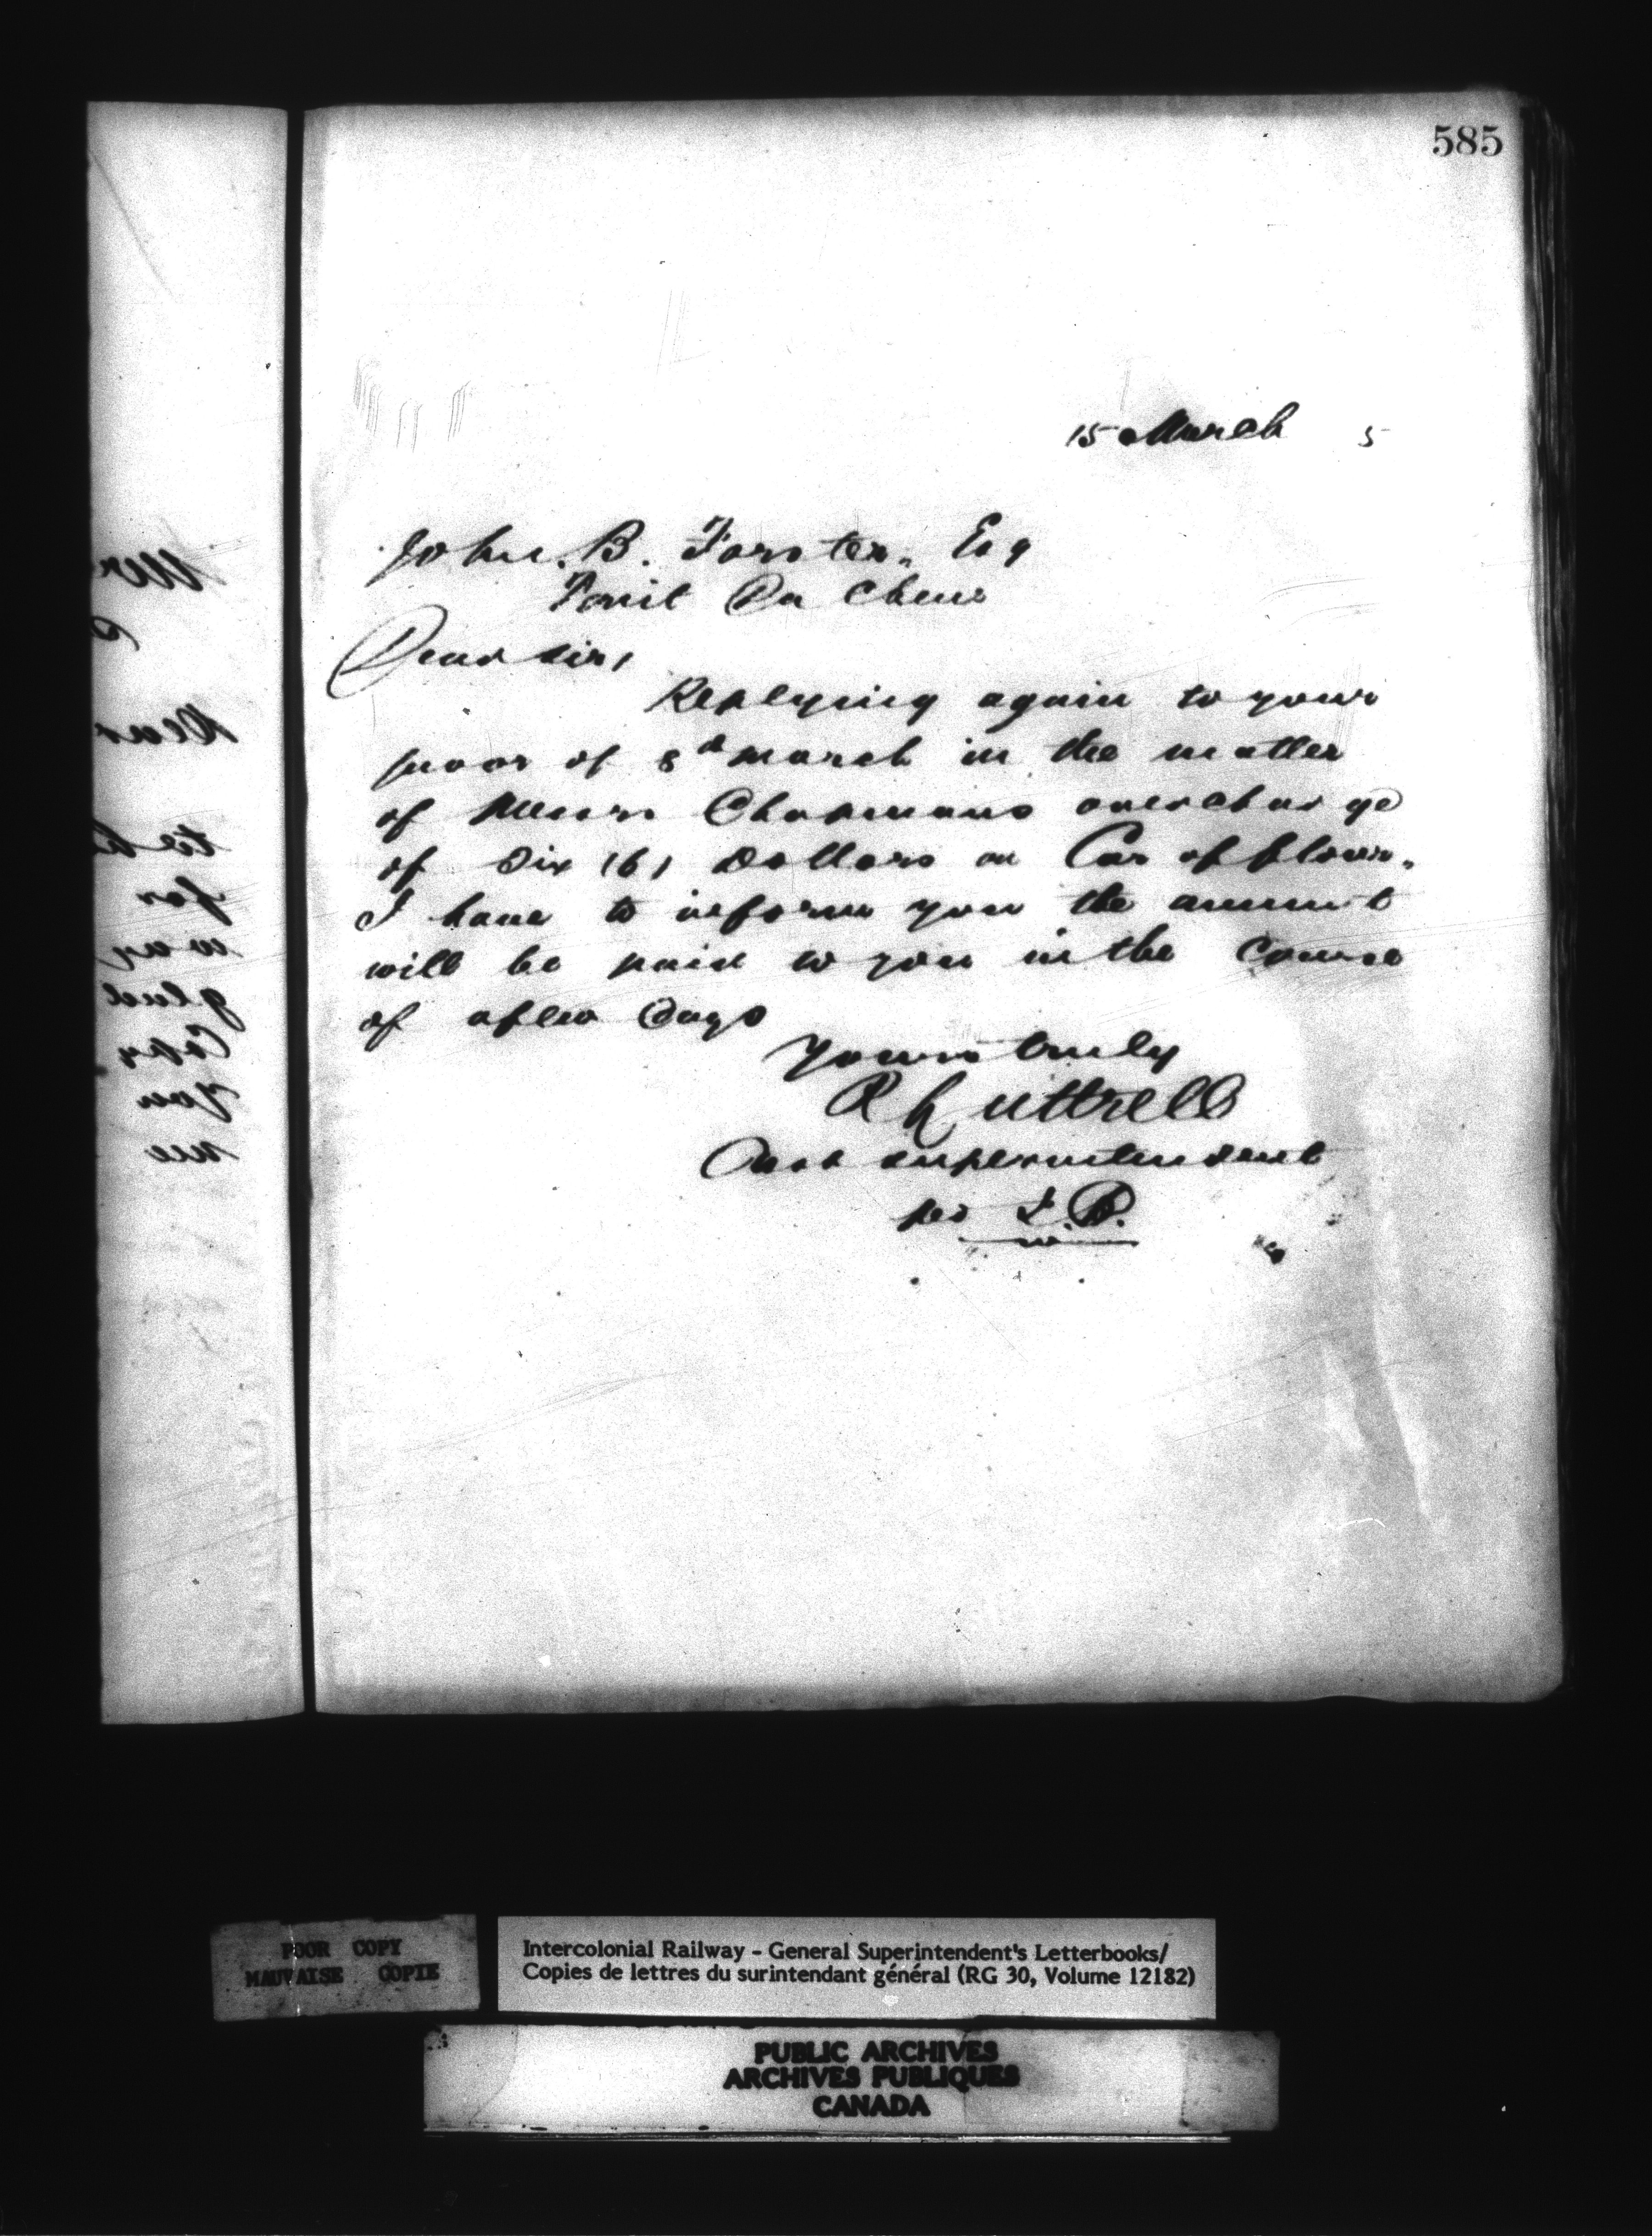 585
15 March 5
John. B. Forster. Esq
Dear Sir,
Replying again to your
favor of 8th March in the matter
of Messrs Chapmans overcharge
of Six (6) Dollars on Car of flour.
I have to inform you the amount
will be paid to you in the Course
of a few Days
Yours truly
R Luttrell
Asst Superintendent
per
POOR COPY
MAUVAISE COPIE
Intercolonial Railway - General Superintendent's Letterbooks/
Copies de lettres du surintendant général (RG 30, Volume 12182)
PUBLIC ARCHIVES
ARCHIVES PUBLIQUES
CANADA